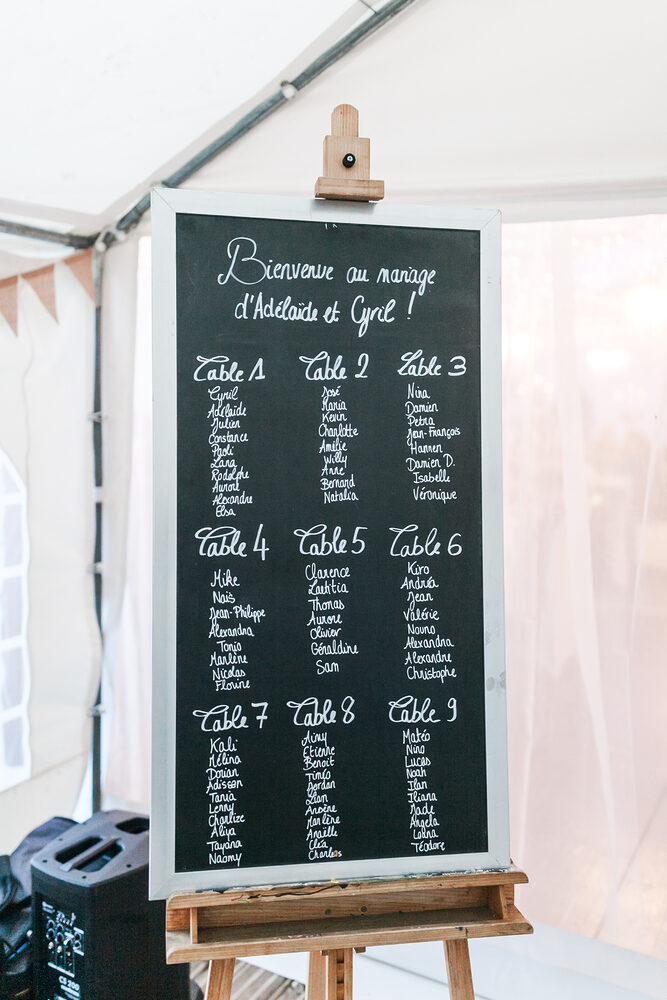 Bienvenue au mariage
d'Adélaïde et Cyril !
Table 1
Cyril
Adélaïde
Julien
Constance
Paoli
Lana
Rodolphe
Aurore
Alexandre
Elsa
Table 2
José
Maria
Kevin
Charlotte
Amélie
Willy
Anne
Bernard
Natalia
Table 3
Nina
Damien
Petra
Jean-François
Hannen
Damien D.
Isabelle
Véronique
Table 4
Mike
Naïs
Jean-Philippe
Alexandra
Tonio
Marlène
Nicolas
Flourine
Table 5
Clarence
Laetitia
Thomas
Aurore
Olivier
Géraldine
Sam
Table 6
Kiro
Andréa
Jean
Valérie
Nouno
Alexandra
Alexandre
Christophe
Table 7
Kali
Mélina
Dorian
Adisson
Tania
Lenny
Charlize
Aliya
Tayana
Naomy
Table 8
Ainy
Etienne
Benoit
Timéo
Jordan
Lian
Arsène
Marlène
Anaëlle
Cléa
Charles
Table 9
Matéo
Nino
Lucas
Noah
Ilan
Iliana
Jade
Angela
Louna
Téodore
CS 200